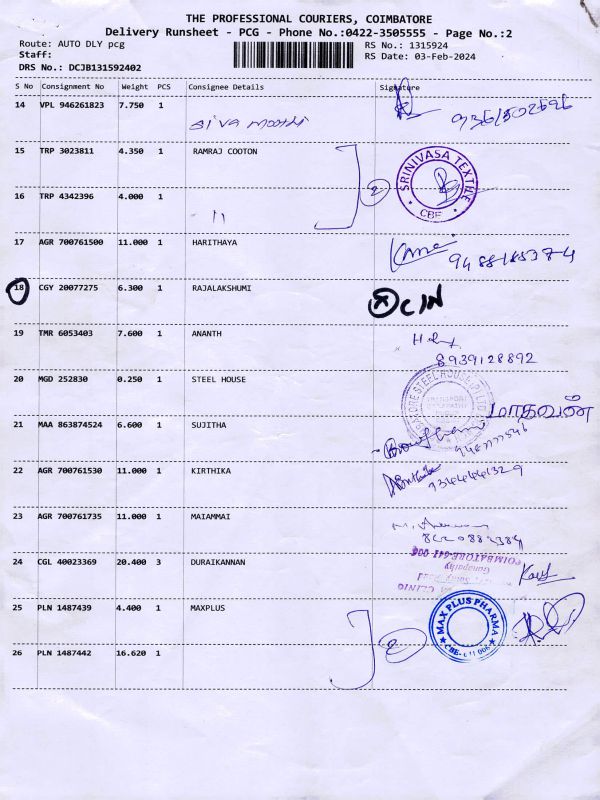 THE PROFESSIONAL COURIERS, COIMBATORE
Delivery Runsheet - PCG - Phone No.:0422-3505555 - Page No.:2
Route: AUTO DLY pcg RS No.: 1315924
Staff: RS Date: 03-Feb-2024
DRS No.: DCJB131592402
S No Consignment No Weight PCS Consignee Details Signature
14 VPL 946261823 7.750 1
siva moorthi
15 TRP 3023811 4.350 1 RAMRAJ COOTON
2
SRINIVASA TEXTILE
CBE
16 TRP 4342396 4.000 1
- 11
17 AGR 700761500 11.000 1 HARITHAYA
9488185374
18 CGY 20077275 6.300 1 RAJALAKSHUMI
X CIN
19 TMR 6053403 7.600 1 ANANTH
8939128892
20 MGD 252830 0.250 1 STEEL HOUSE
STEEL HOUSE (P) LTD
மாதவன்
21 MAA 863874524 6.600 1 SUJITHA
22 AGR 700761530 11.000 1 KIRTHIKA
23 AGR 700761735 11.000 1 MAIAMMAI
24 CGL 40023369 20.400 3 DURAIKANNAN
CLINIC
Ganapathy
COIMBATORE-641 006
25 PLN 1487439 4.400 1 MAXPLUS
2
MAX PLUS PHARMA
CBE-641 006
26 PLN 1487442 16.620 1